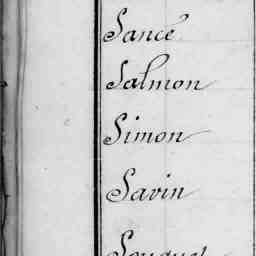 Sancé
Salmon
Simon
Savin